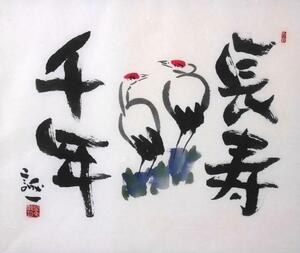 長寿
千年